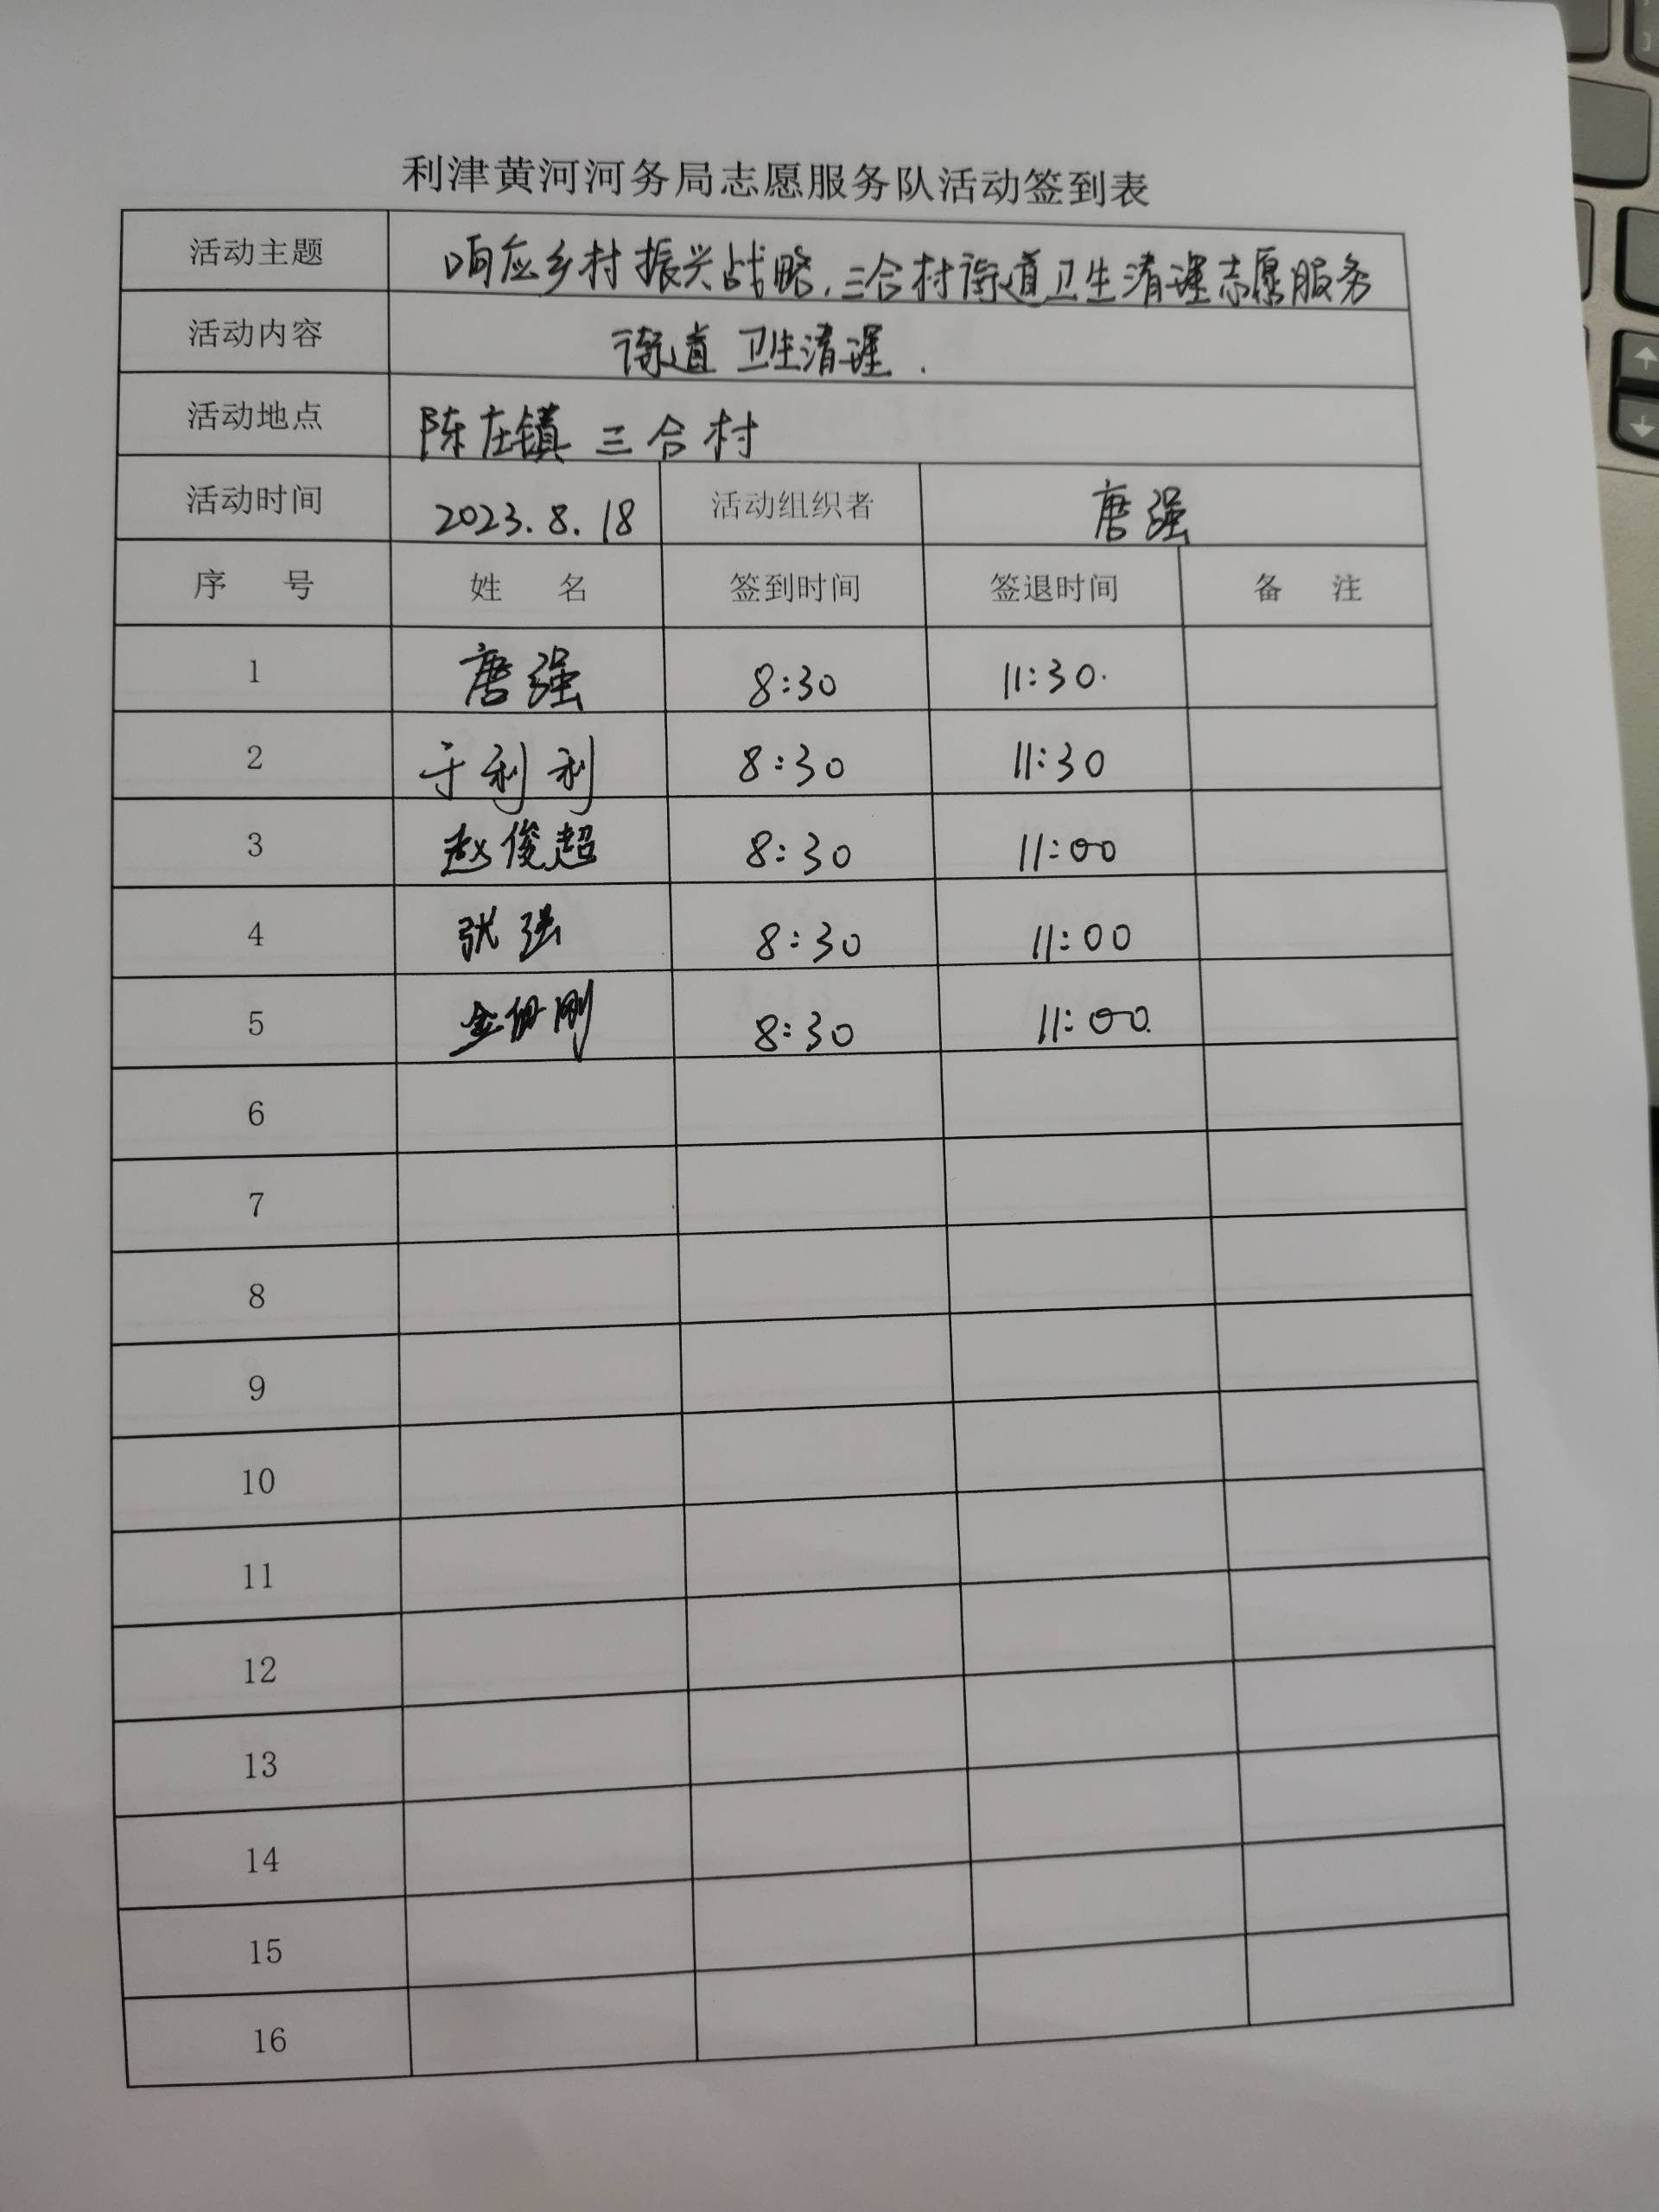 利津黄河河务局志愿服务队活动签到表
活动主题 响应乡村振兴战略,三合村街道卫生清理志愿服务
活动内容 街道卫生清理.
活动地点 陈庄镇三合村
活动时间 2023.8.18 活动组织者 唐强
序 号 姓 名 签到时间 签退时间 备 注
1 唐强 8:30 11:30.
2 于利利 8:30 11:30
3 赵俊超 8:30 11:00
4 张强 8:30 11:00
5 8:30 11:00
6
7
8
9
10
11
12
13
14
15
16